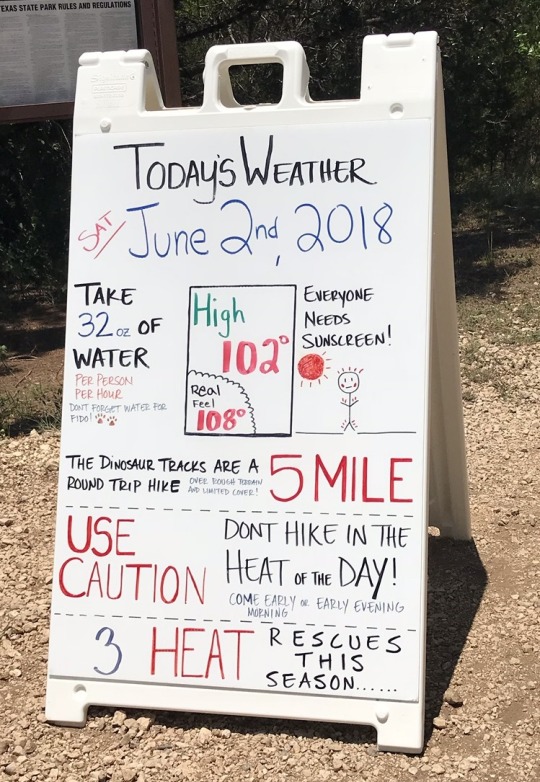 TEXAS STATE PARK RULES AND REGULATIONS
TODAY'S WEATHER
SAT
June 2nd, 2018
TAKE
32 oz OF
WATER
PER PERSON
PER HOUR
DON'T FORGET WATER FOR
FIDO!
High
102°
Real
Feel
108°
EVERYONE
NEEDS
SUNSCREEN!
THE DINOSAUR TRACKS ARE A
ROUND TRIP HIKE
OVER ROUGH TERRAIN
AND LIMITED COVER!
5 MILE
USE
CAUTION
DONT HIKE IN THE
HEAT OF THE DAY!
COME EARLY OR EARLY EVENING
MORNING
3 HEAT
RESCUES
THIS
SEASON......